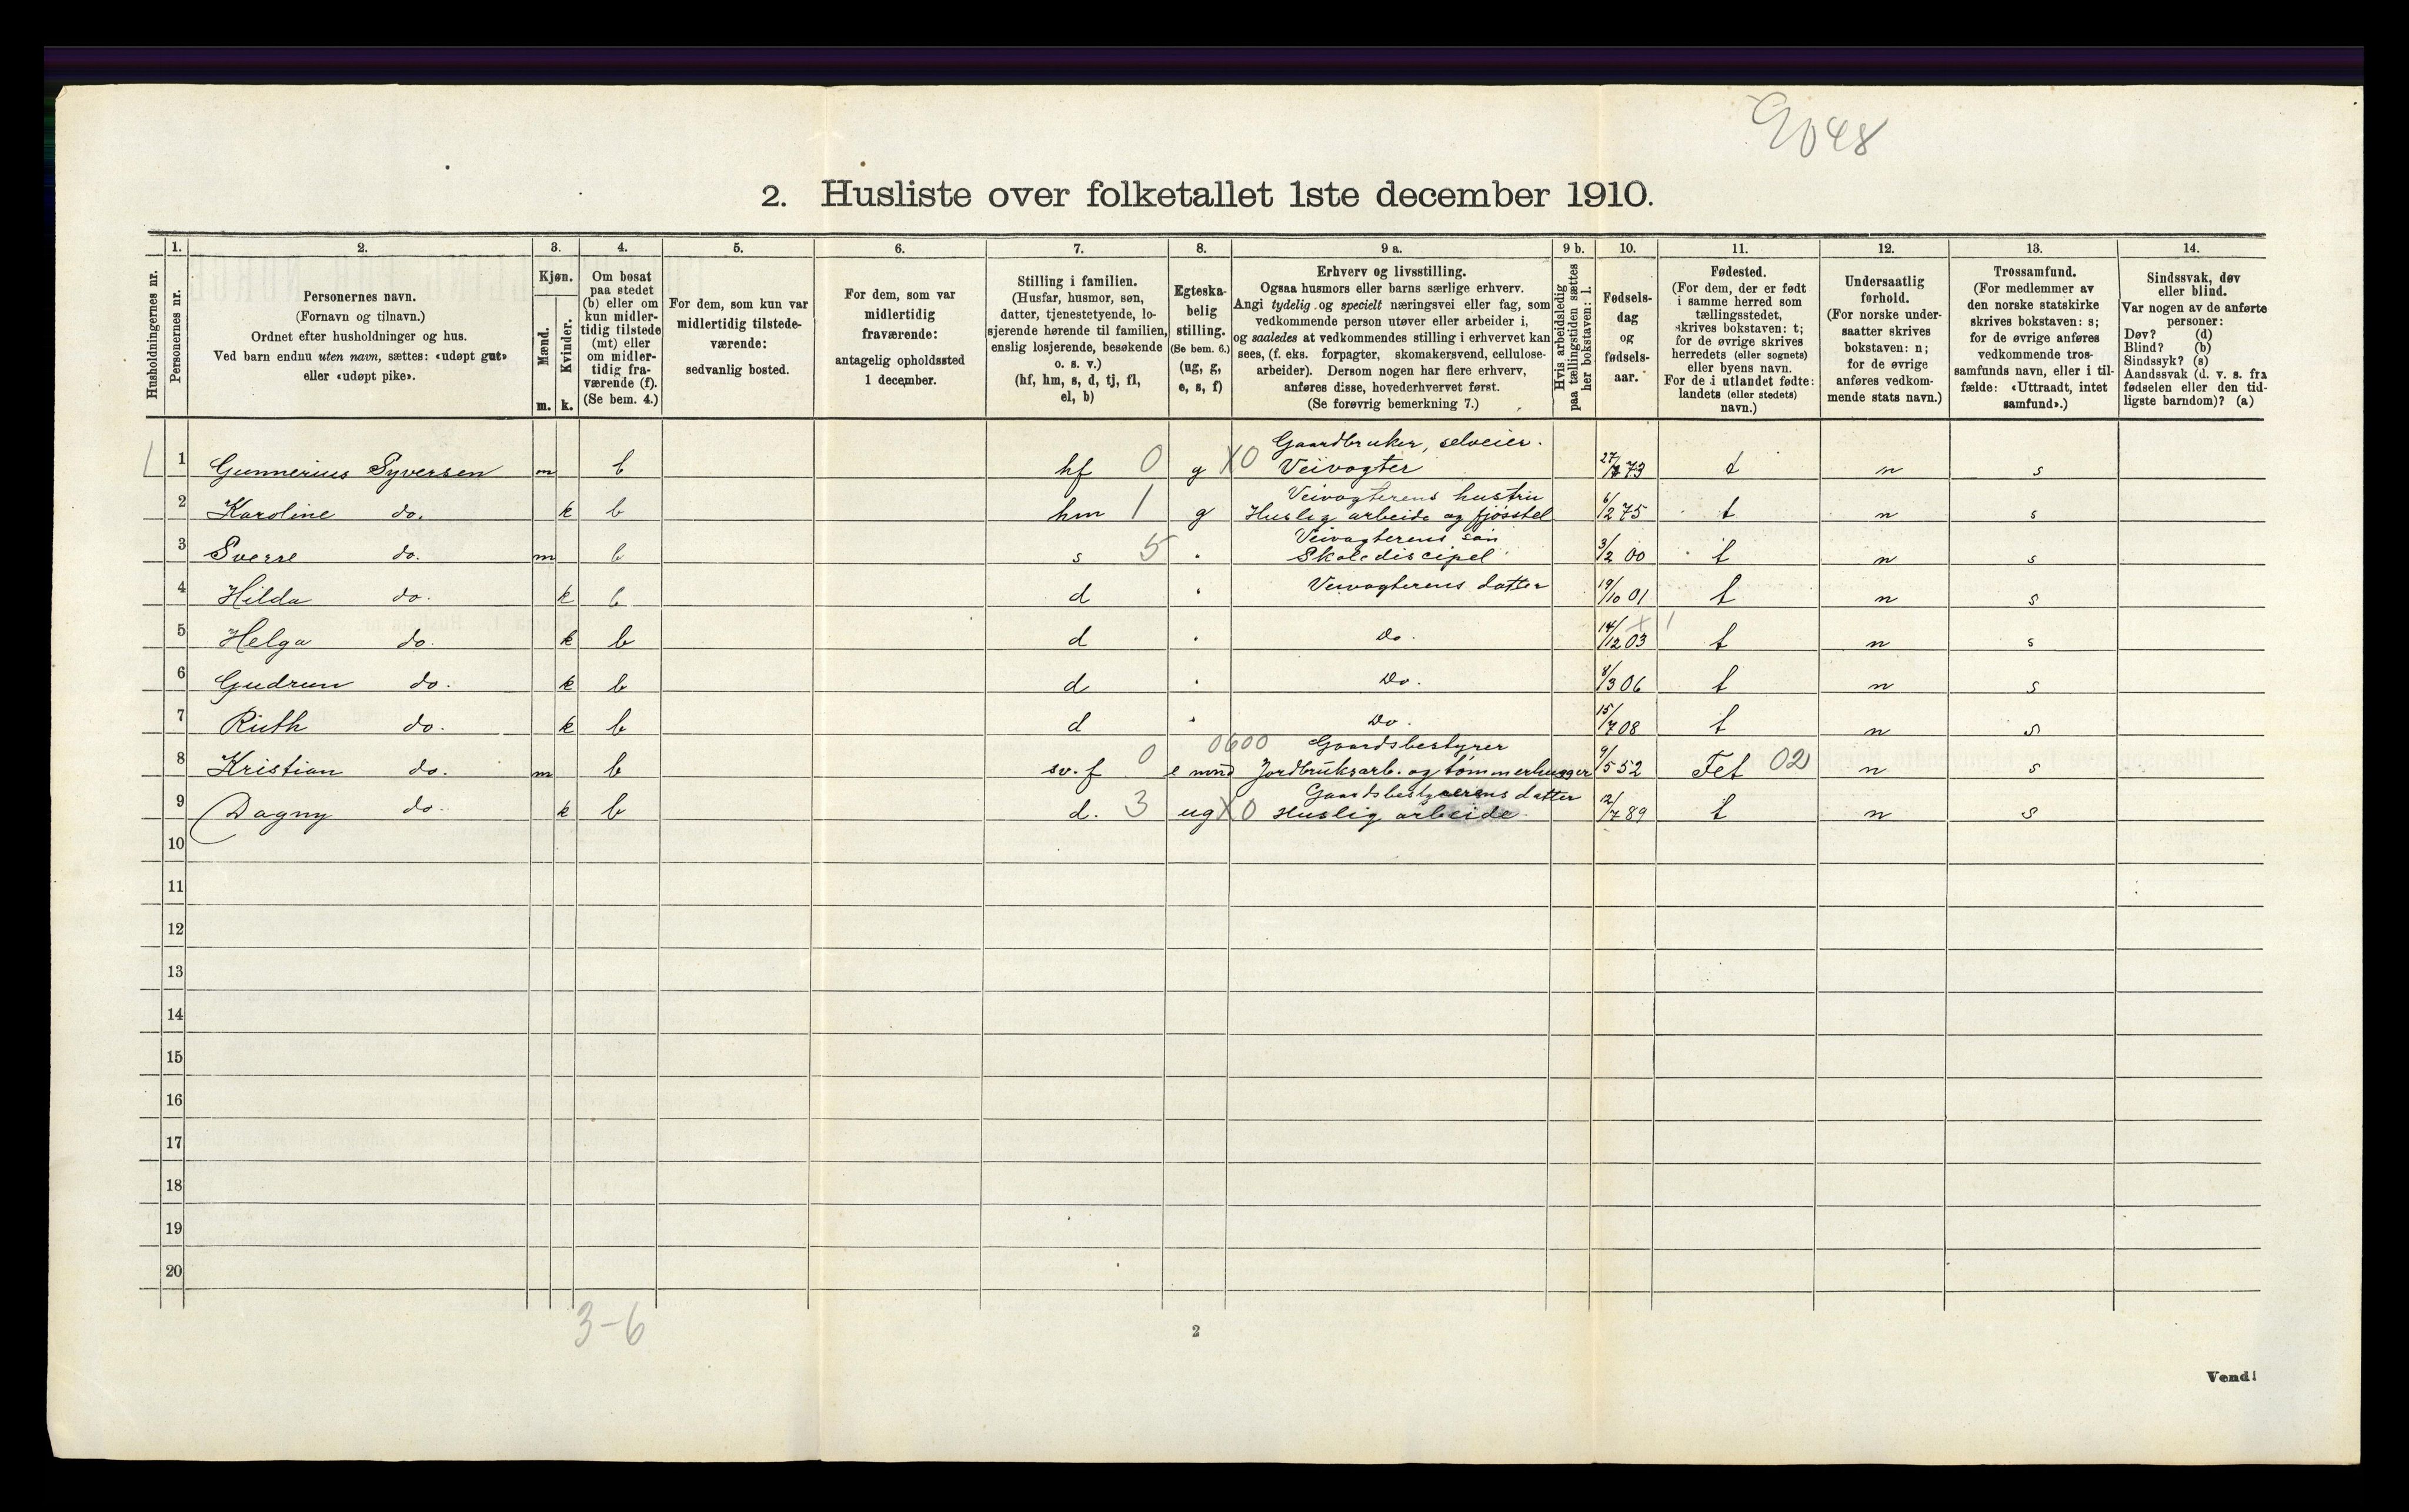 9048
2. Husliste over folketallet 1ste december 1910.
Husholdningernes nr.
1. Personernes nr.
2. Personernes navn.
(Fornavn og tilnavn.)
Ordnet efter husholdninger og hus.
Ved barn endnu uten navn, sættes: «udøpt gut»
eller «udøpt pike».
3. Kjøn.
Mænd. m.
Kvinder. k.
4. Om bosat
paa stedet
(b) eller om
kun midler-
tidig tilstede
(mt) eller
om midler-
tidig fra-
værende (f).
(Se bem. 4.)
5. For dem, som kun var
midlertidig tilstede-
værende:
sedvanlig bosted.
6. For dem, som var
midlertidig
fraværende:
antagelig opholdssted
1 december.
7. Stilling i familien.
(Husfar, husmor, søn,
datter, tjenestetyende, lo-
sjerende hørende til familien,
enslig losjerende, besøkende
o. s. v.)
(hf, hm, s, d, tj, fl,
el, b)
8. Egteska-
belig
stilling.
(Se bem. 6.)
(ug, g,
e, s, f)
9 a. Erhverv og livsstilling.
Ogsaa husmors eller barns særlige erhverv.
Angi tydelig og specielt næringsvei eller fag, som
vedkommende person utøver eller arbeider i,
og saaledes at vedkommendes stilling i erhvervet kan
sees, (f. eks. forpagter, skomakersvend, cellulose-
arbeider). Dersom nogen har flere erhverv,
anføres disse, hovederhvervet først.
(Se forøvrig bemerkning 7.)
9 b. Hvis arbeidsledig
paa tællingstiden sættes
her bokstaven: l.
10. Fødsels-
dag
og
fødsels-
aar.
11. Fødested.
(For dem, der er født
i samme herred som
tællingsstedet,
skrives bokstaven: t;
for de øvrige skrives
herredets (eller sognets)
eller byens navn.
For de i utlandet fødte:
landets (eller stedets)
navn.)
12. Undersaatlig
forhold.
(For norske under-
saatter skrives
bokstaven: n;
for de øvrige
anføres vedkom-
mende stats navn.)
13. Trossamfund.
(For medlemmer av
den norske statskirke
skrives bokstaven: s;
for de øvrige anføres
vedkommende tros-
samfunds navn, eller i til-
fælde: «Uttraadt, intet
samfund».)
14. Sindssvak, døv
eller blind.
Var nogen av de anførte
personer:
Døv? (d)
Blind? (b)
Sindssyk? (s)
Aandssvak (d. v. s. fra
fødselen eller den tid-
ligste barndom)? (a)
Gaardbruker, selveier.
1 Gunnerius Syversen m b hf 0 g X0 Veivogter 27/7 73 t n s
Veivogterens hustru
2 Karoline do. k b hm 1 g Huslig arbeide og fjøsstel 6/2 75 t n s
Veivogterens søn
3 Sverre do. m b s 5 Skolediscipel 3/2 00 t n s
4 Hilda do. k b d Veivogterens datter 19/10 01 t n s
5 Helga do. k b d Do. 14/12 03 t n s
6 Gudrun do. k b d Do. 8/3 06 t n s
7 Ruth do. k b d Do. 15/7 08 t n s
0600 Gaardsbestyrer
8 Kristian do. m b sv. f 0 e Jordbruksarb. og tømmerhugger 9/5 52 Fet 02 n s
Gaardsbestyrerens datter
9 Dagny do. k b d. 3 ug X0 Huslig arbeide 12/7 89 t n s
10
11
12
13
14
15
16
17
18
19
20
3-6
2
Vend!